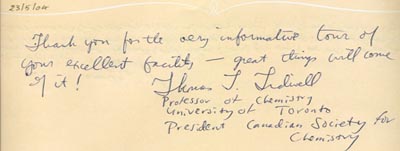 23/5/04
Thank you for the very informative tour of
your excellent facility — great things will come
of it!
Thomas T. Tidwell
Professor of Chemistry
University of Toronto
President Canadian Society for
Chemistry